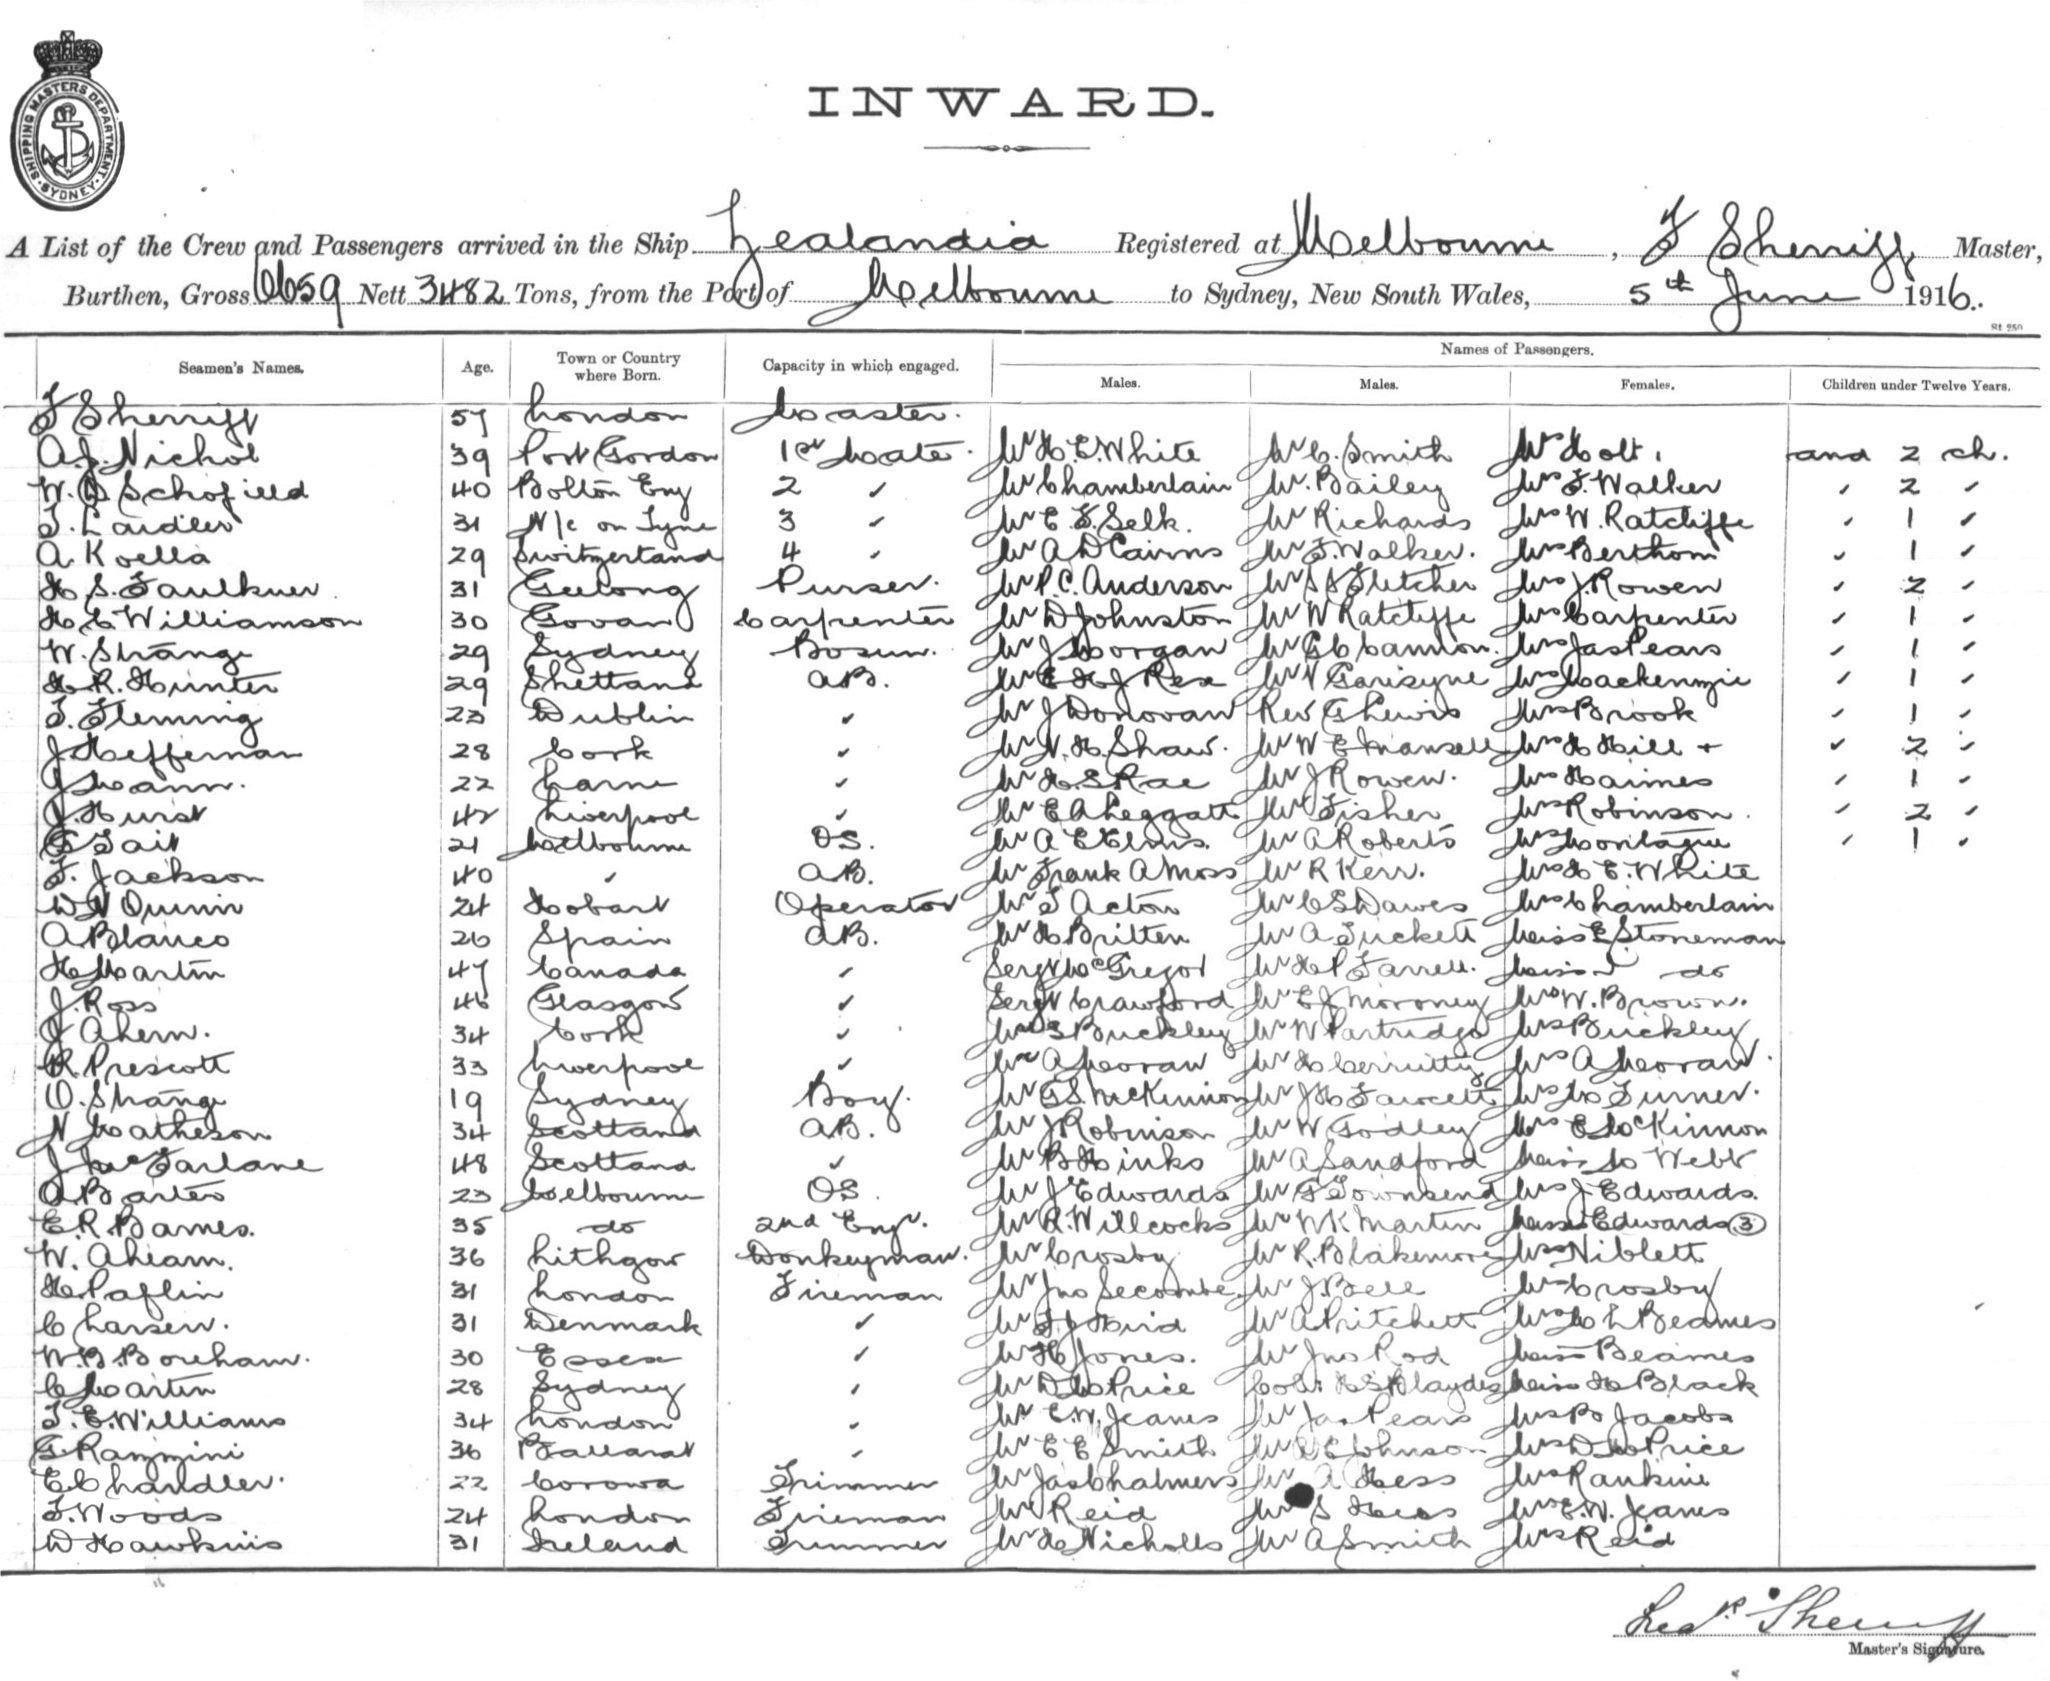 SHIPPING MASTERS DEPARTMENT. SYDNEY.
INWARD.
A List of the Crew and Passengers arrived in the Ship Zealandia Registered at Melbourne, F Sherriff Master,
Burthen, Gross 6659 Nett 3482 Tons, from the Port of Melbourne to Sydney, New South Wales, 5th June 1916.
Seamen's Names. Age. Town or Country where Born. Capacity in which engaged. Names of Passengers.
Males. Males. Females. Children under Twelve Years.
F Sherriff 57 London Master.
A.J. Nichol 39 Port Gordon 1st Mate. Mr H.E. White Mr C. Smith Mrs Holt, and 2 ch.
W. D Schofield 40 Bolton Eng 2 ✓ Mr Chamberlain Mr. Bailey Mrs F. Walker " 2 "
T. Laidler 31 N/c on Tyne 3 ✓ Mr E. F. Selk. Mr Richards Mrs W. Ratcliffe " 1 "
A. Koella 29 Switzerland 4 " Mr A D Cairns Mr F. Walker. Mrs Berthom " 1 "
H. S. Faulkner 31 Geelong Purser. Mr P.C. Anderson Mr S S Fletcher Mrs J. Rowen " 2 "
H. C Williamson 30 Govan Carpenter Mr D Johnston Mr W Ratcliffe Mrs Carpenter " 1 "
W. Strange 29 Sydney Bosun. Mr J Morgan Mr G C Cannon. Mrs Jas Pears " 1 "
H. R. Hunter 29 Shetland AB. Mr E H J Rex Mr V Mrs Mackenzie " 1 "
T. Fleming 23 Dublin " Mr J Donovan Rev G Lewis Mrs Brook " 1 "
J Heffernan 28 Cork " Mr N. H. Shaw. Mr W E Mansell Mrs H Hill + " 2 "
J Mann. 22 Larne " Mr H. S Rae Mr J Rowen. Mrs Haimes " 1 "
J. Hurst 42 Liverpool " Mr E A Leggatt Mr Fisher Mrs Robinson. " 2 "
G Tait 21 Melbourne OS. Mr A E Elvins. Mr A Roberts Mrs Montague " 1 "
F. Jackson 40 " AB. Mr Frank A Moss Mr R Kerr. Mrs H E. White
W V Quinn 24 Hobart Operator Mr T Acton Mr C S Dawes Mrs Chamberlain
A Blanco 26 Spain AB. Mr H. Britten Mr A Tuckett Miss E Stoneman
H Martin 47 Canada " Sergt McGregor Mr H P Farrell. Miss do
J. Ross 46 Glasgow " Sergt Crawford Mr E J Moroney Mrs W. Brown.
J Ahern. 34 Cork " Mr S Buckley Mr W Partridge Mrs Buckley
R. Prescott 33 Liverpool " Mr A Moran Mr H Cerrutty Mrs A Moran.
O. Strange 19 Sydney Boy. Mr G S. McKinnon Mr J H Fawcett Mrs M Turner.
N Matheson 34 Scotland AB. Mr J Robinson Mr W Godley Mrs E McKinnon
J McFarlane 48 Scotland " Mr B Hinks Mr A Sandford Miss M Webb
A Barter 23 Melbourne OS. Mr J Edwards Mr G Townsend Mrs J Edwards.
E. R. Barnes. 35 do 2nd Engr. Mr R. Willcocks Mr W K Martin Misses Edwards (3)
W. Ahearn. 36 Lithgow Donkeyman. Mr Crosby Mr R. Blakemore Mrs Niblett
H. Paflin 31 London Fireman Mr Jno Secombe. Mr J. Bell Mrs Crosby
C Larsen. 31 Denmark " Mr F J Hird Mr A Pritchett Mrs M L Beames
W. B. Boreham. 30 Essex " Mr H Jones. Mr Jno Rod Miss Beames
C Martin 28 Sydney " Mr D M Price Col. H S Blaydes Miss H Black
T. E. Williams 34 London " Mr E. W. Jeanes Mr Jas Pears Mrs B Jacobs
G Rammini 36 Ballarat " Mr E E Smith Mr Johnson Mrs D M Price
E Chandler. 22 Corowa Trimmer Mr Jas Chalmers Mr A Hess Mrs Rankine
F. Woods 24 London Fireman Mr Reid Mr S Hess Mrs E. W. Jeanes
W Hawkins 31 Ireland Trimmer Mr H Nicholls Mr A Smith Mrs Reid
Fredk Sherriff
Master's Signature.